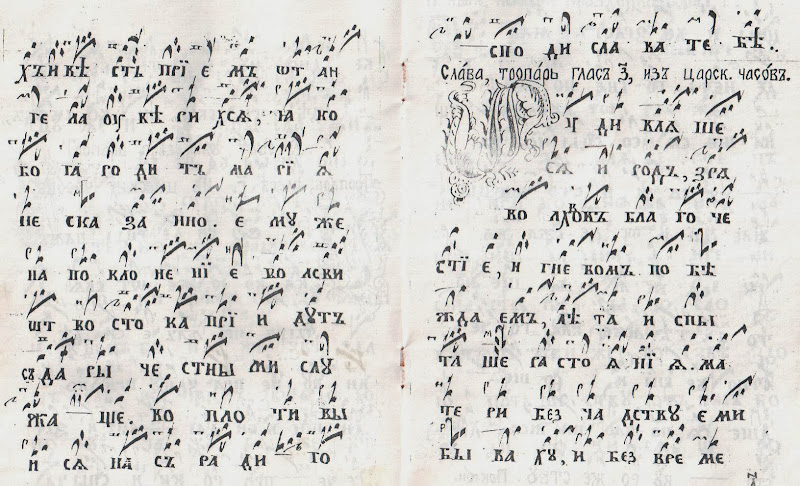 хъ и вѣ сть прї е мъ ѿ ан
ге ла оу вѣ ри хся, ꙗ ко
бо га ро ди тъ ма рї ѧ
не ска за нно. е му же,
на по кло не нї е во лсви
ѿ во сто ка прї и дутъ
съ да ры че стны ми слу
жа ще. во пло ти вы
и ся на съ ра ди го
спо ди сла ва те бѣ.
Сла́ва, тропа́рь гла́съ з҃, изъ ца́рск. часо́въ.
У ди вля ше
ся и родъ, зря
ко лѣ бла го че
стї е, и гнѣ вомъ. по бѣ
жда емъ, лѣ та и спы
та ше га сто я нї я. ма
те ри без ча дству е ми
бы ва ху, и без вре ме